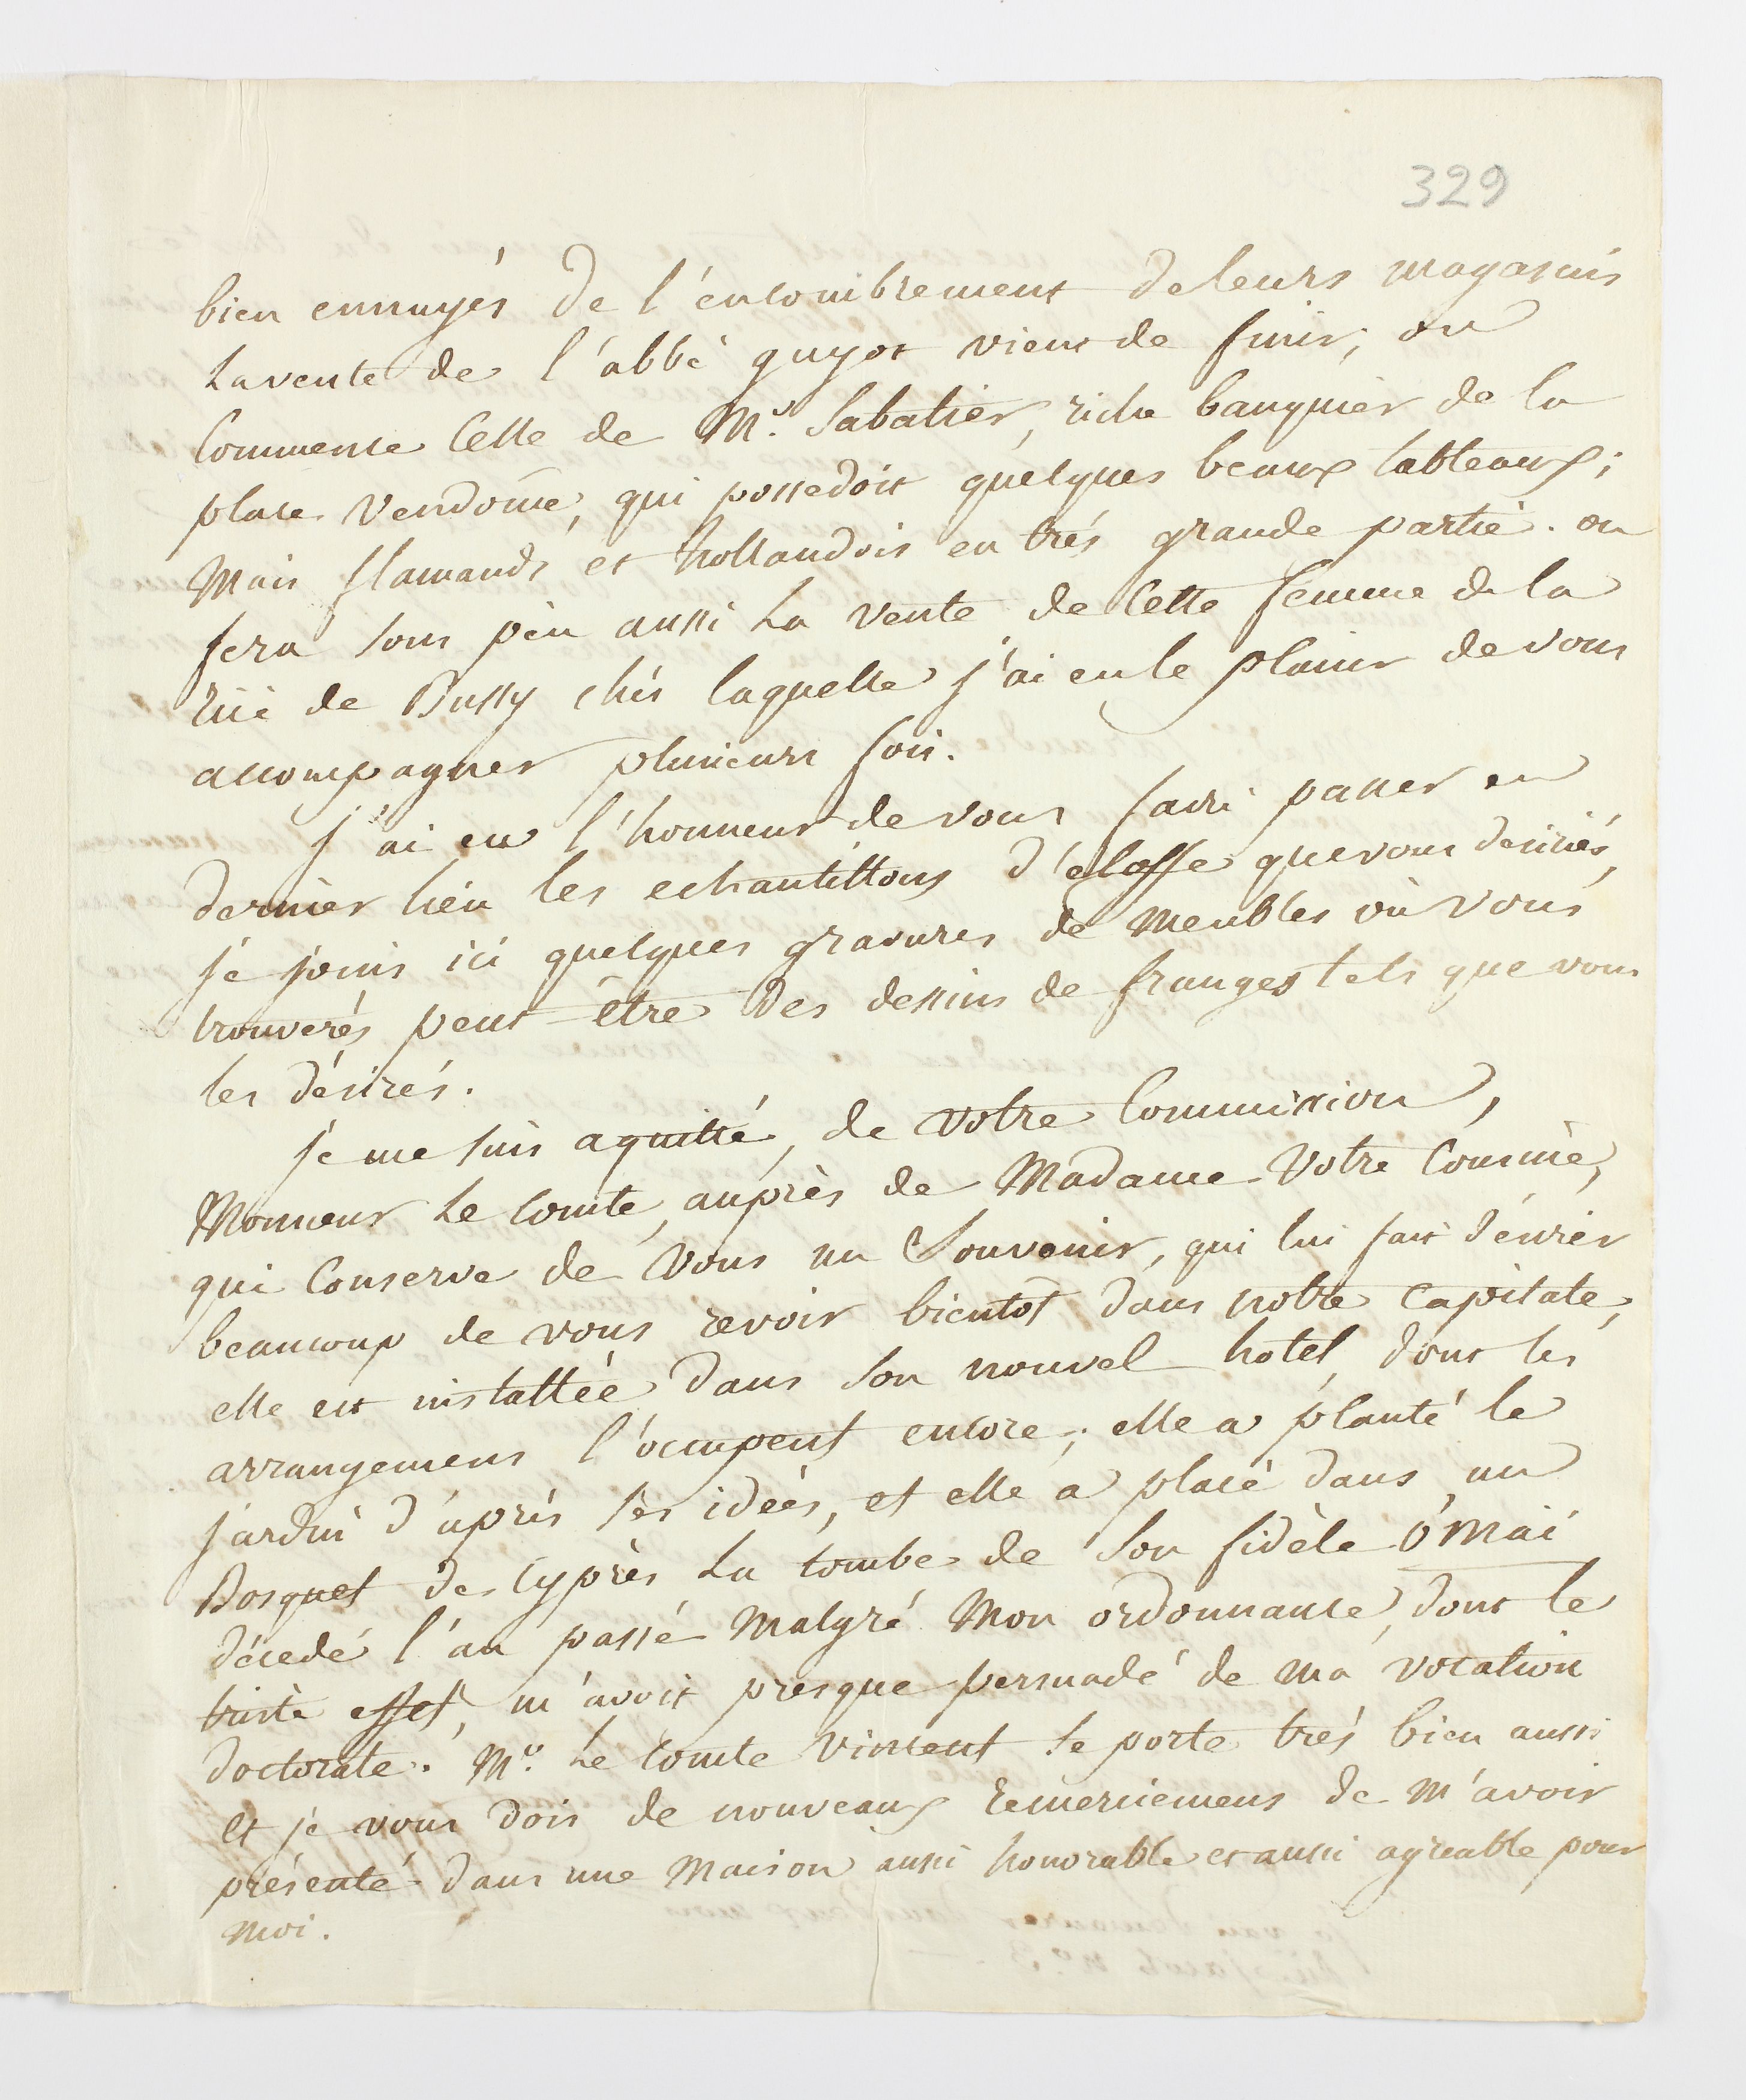 329
bien ennuyés de l'encombrement de leurs magasins
La vente de l'abbé guyot vient de finir, on
Commence Celle de Mr. Sabatier, riche banquier de la
place Vendome, qui possedoit quelques beaux tableaux;
Mais flamands et hollandois en trés grande partie. on
fera sous peu aussi La vente de Cette femme de la
rüe de Bussy chés laquelle j'ai eu le plaisir de vous
accompagner plusieurs fois.
j'ai eu l'honneur de vous faire passer en
dernier lieu les echantillons d'étoffe que vous desiriés,
je joins ici quelques gravures de Meubles où vous
trouverés peut-être des dessins de franges tels que vous
les désirés.
je me suis aquitté, de votre Commission,
Monsieur Le Comte, auprès de Madame Votre Cousine,
qui Conserve de Vous un Souvenir, qui lui fait désirer
beaucoup de vous revoir bientôt dans notre Capitale,
elle est installée dans son nouvel hotel, dont les
arrangemens l'ocupent encore; elle a planté le
jardin d'après ses idées, et elle a placé dans un
Bosquet de Cyprès La tombe de Son fidèle O'Mai
décedé l'an passé Malgré Mon ordonnance, dont le
triste effet, m'avoit presque persuadé de ma vocation
doctorale. Mr. Le Comte Vincent se porte trés bien aussi
et je vous dois de nouveaux remerciemens de M'avoir
présenté dans une Maison aussi honorable et aussi agreable pour
moi.